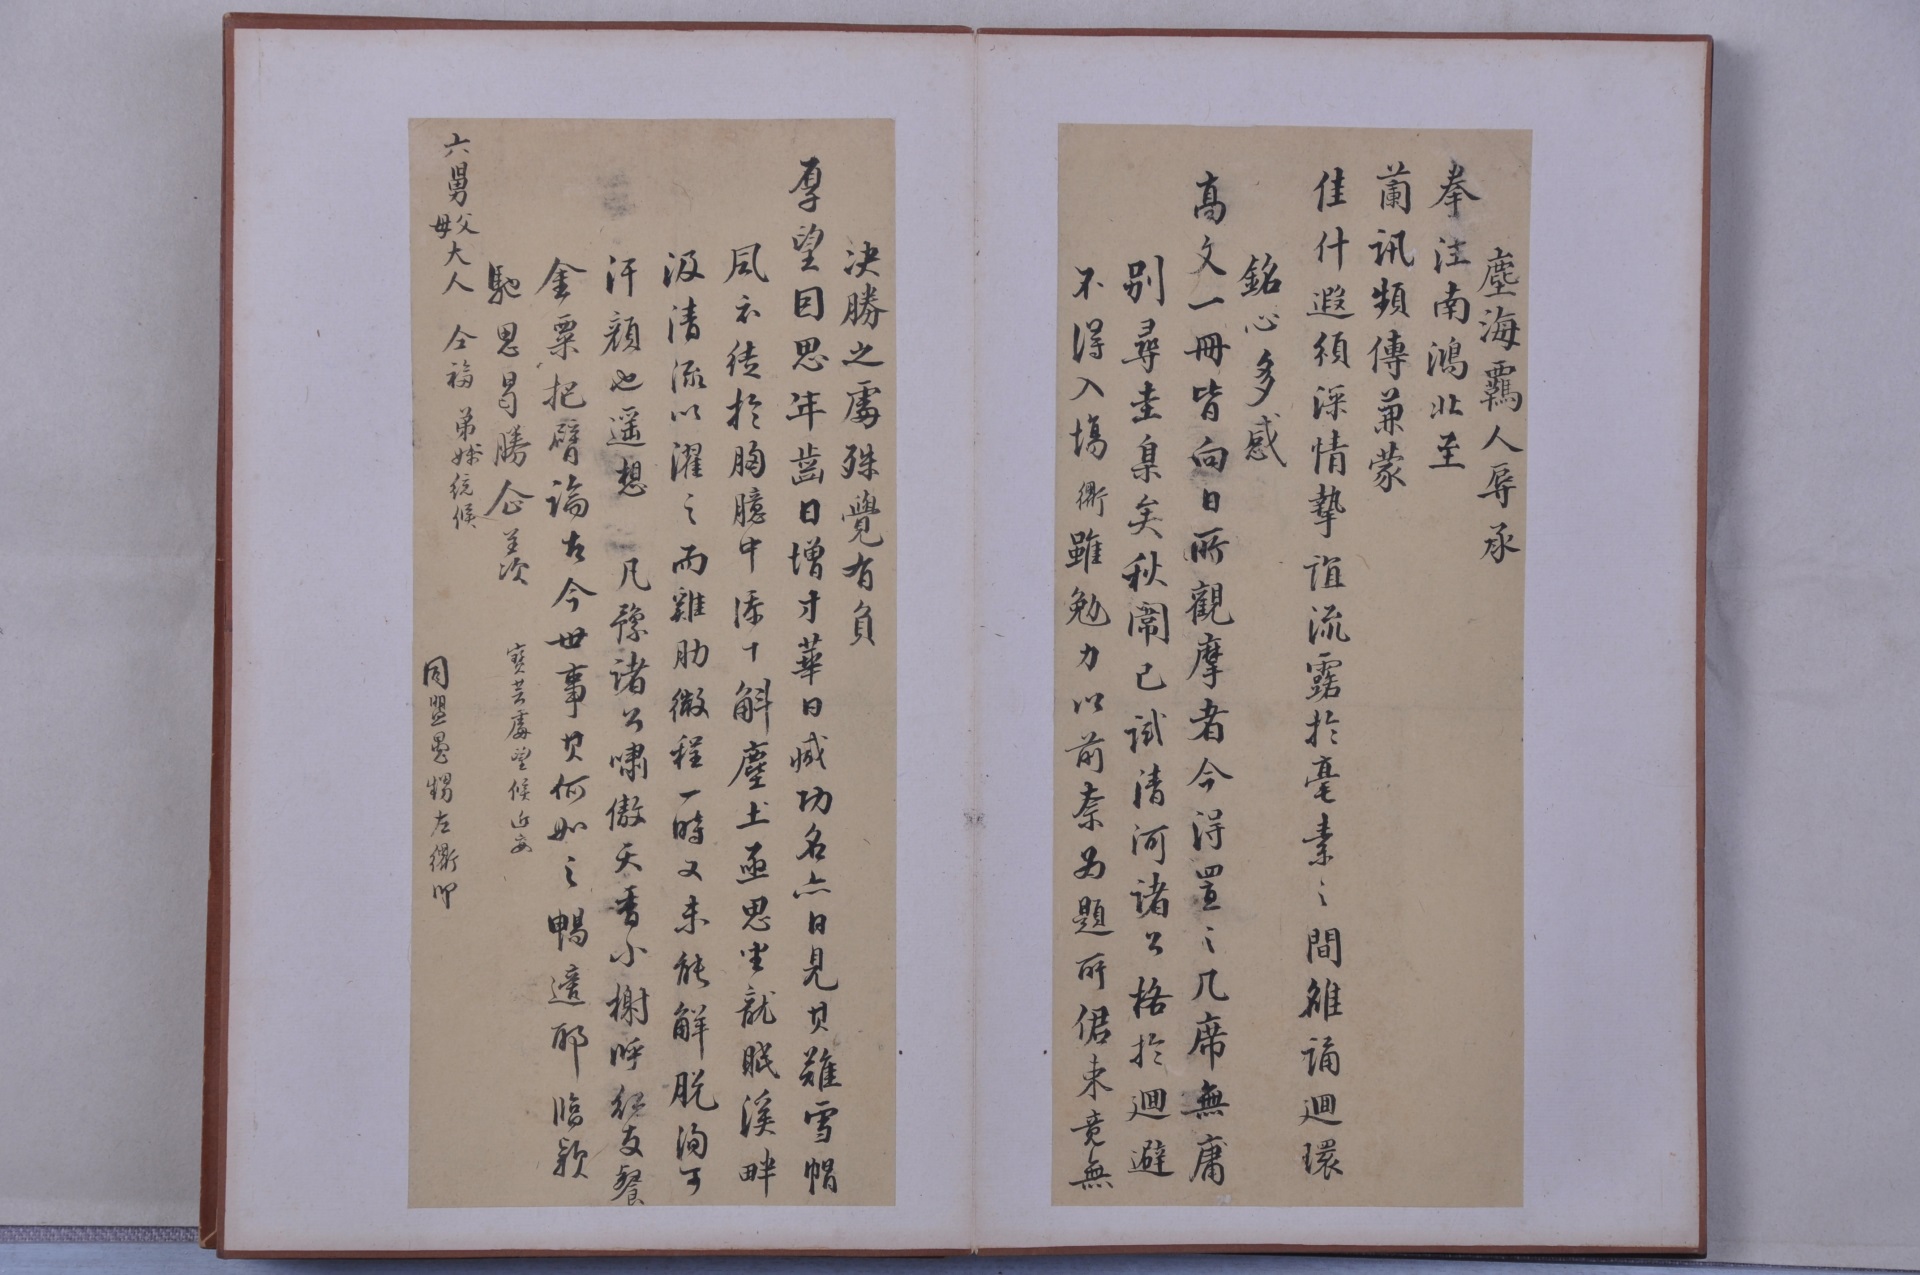 塵海羈人辱承
奉注南鴻北至
蘭訊頻傳兼蒙
佳什遐頒深情摯誼流露於毫素之間雒誦迴環
銘心多感
高文一冊皆向日所觀摩者今得置之几席無庸
別尋圭臬矣秋闈已試清河諸公格於迴避
不得入場衢雖勉力以前奈為題所僒束竟無
決勝之處殊覺有負
厚望因思年齒日增才華日減功名亦日見其難雪帽
風衣徒於胸臆中添十斛塵土亟思坐龍眠溪畔
汲清流以濯之而雞肋微程一時又未能解脫洵可
汗顏也遥想 凡豫諸公嘯傲天香小榭呼紅友餐
金粟把臂論古今世事其何如之暢適耶臨穎
馳思曷勝企羨
寶芸處望候近安
六舅父母大人 仝福 弟妹統候
同盟愚甥左衢叩